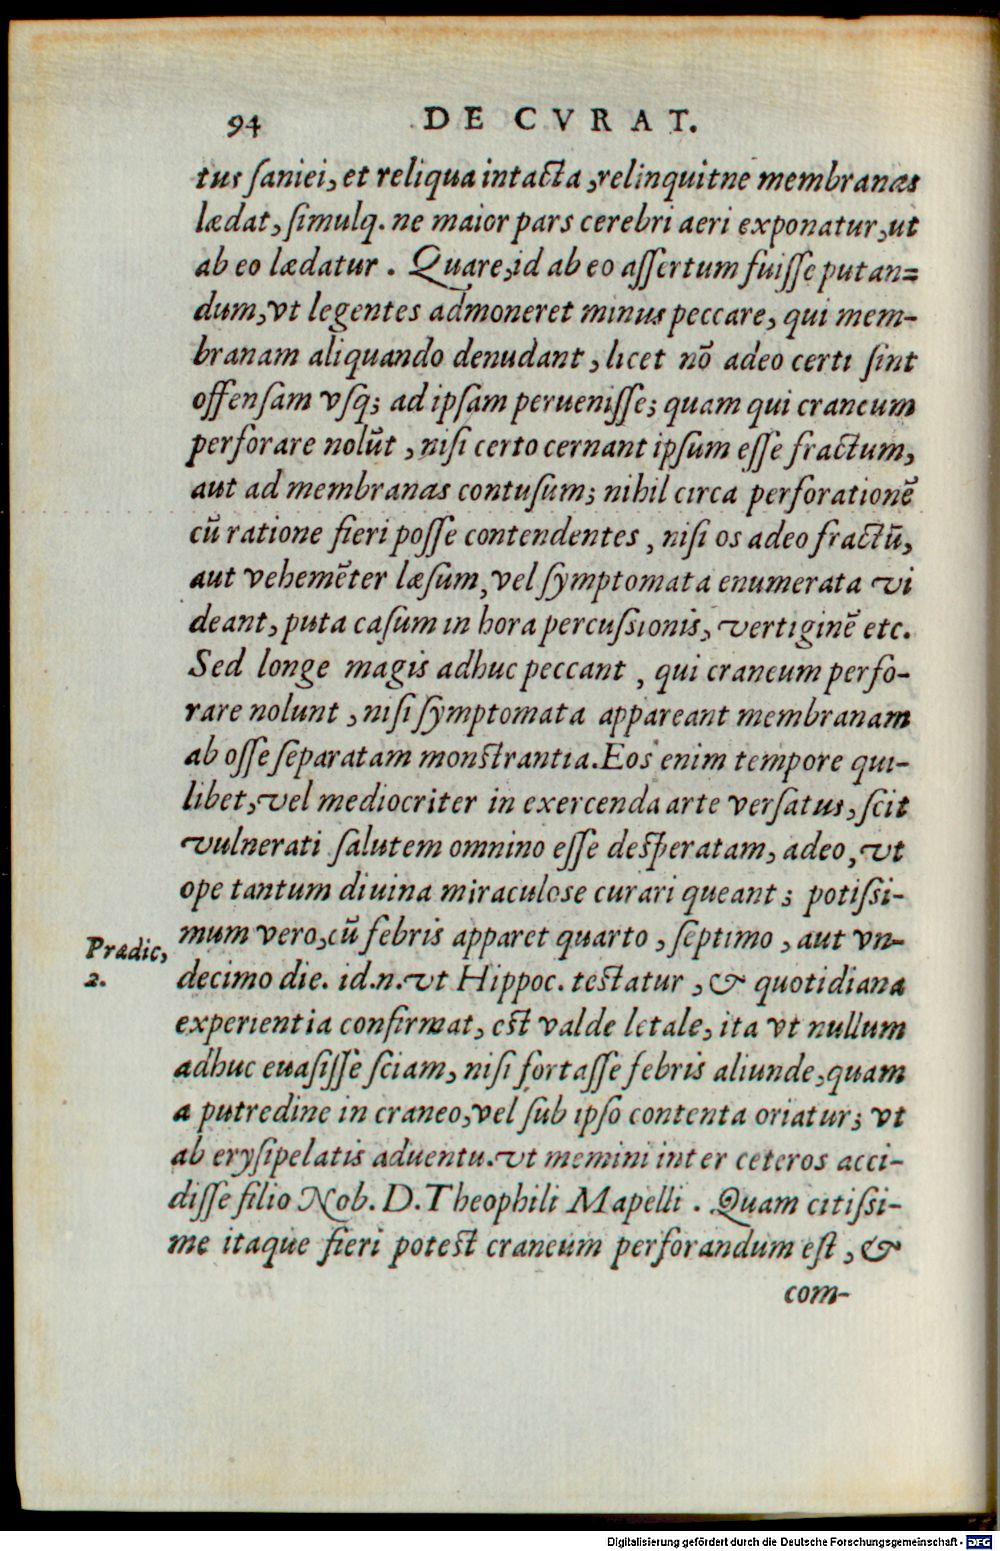 94 DE CVRAT.
tus ſaniei, et reliqua intacta, relinquitne membranas
lædat, ſimulq. ne maior pars cerebri aeri exponatur, ut
ab eo lædatur. Quare, id ab eo aſſertum fuiſſe putan=
dum, vt legentes admoneret minus peccare, qui mem-
branam aliquando denudant, licet nō adeo certi ſint
offenſam vſq; ad ipſam perueniſſe; quam qui craneum
perforare nolūt, niſi certo cernant ipſum eſſe fractum,
aut ad membranas contuſum; nihil circa perforationē
cū ratione fieri poſſe contendentes, niſi os adeo fractū,
aut vehemēter læſum, vel ſymptomata enumerata vi
deant, puta caſum in hora percuſsionis, vertiginē etc.
Sed longe magis adhuc peccant, qui craneum perfo-
rare nolunt, niſi ſymptomata appareant membranam
ab oſſe ſeparatam monſtrantia. Eos enim tempore qui-
libet, vel mediocriter in exercenda arte verſatus, ſcit
vulnerati ſalutem omnino eſſe deſperatam, adeo, vt
ope tantum diuina miraculose curari queant; potiſsi-
mum vero, cū febris apparet quarto, ſeptimo, aut vn-
Prædic, 2.
decimo die. id.n. vt Hippoc. teſtatur, & quotidiana
experientia confirmat, eſt valde letale, ita vt nullum
adhuc euaſiſſe ſciam, niſi fortaſſe febris aliunde, quam
a putredine in craneo, vel ſub ipſo contenta oriatur; vt
ab eryſipelatis aduentu. vt memini inter ceteros acci-
diſſe filio Nob. D. Theophili Mapelli. Quam citiſsi-
me itaque fieri poteſt craneum perforandum eſt, &
com-
Digitalisierung gefördert durch die Deutsche Forschungsgemeinschaft - DFG